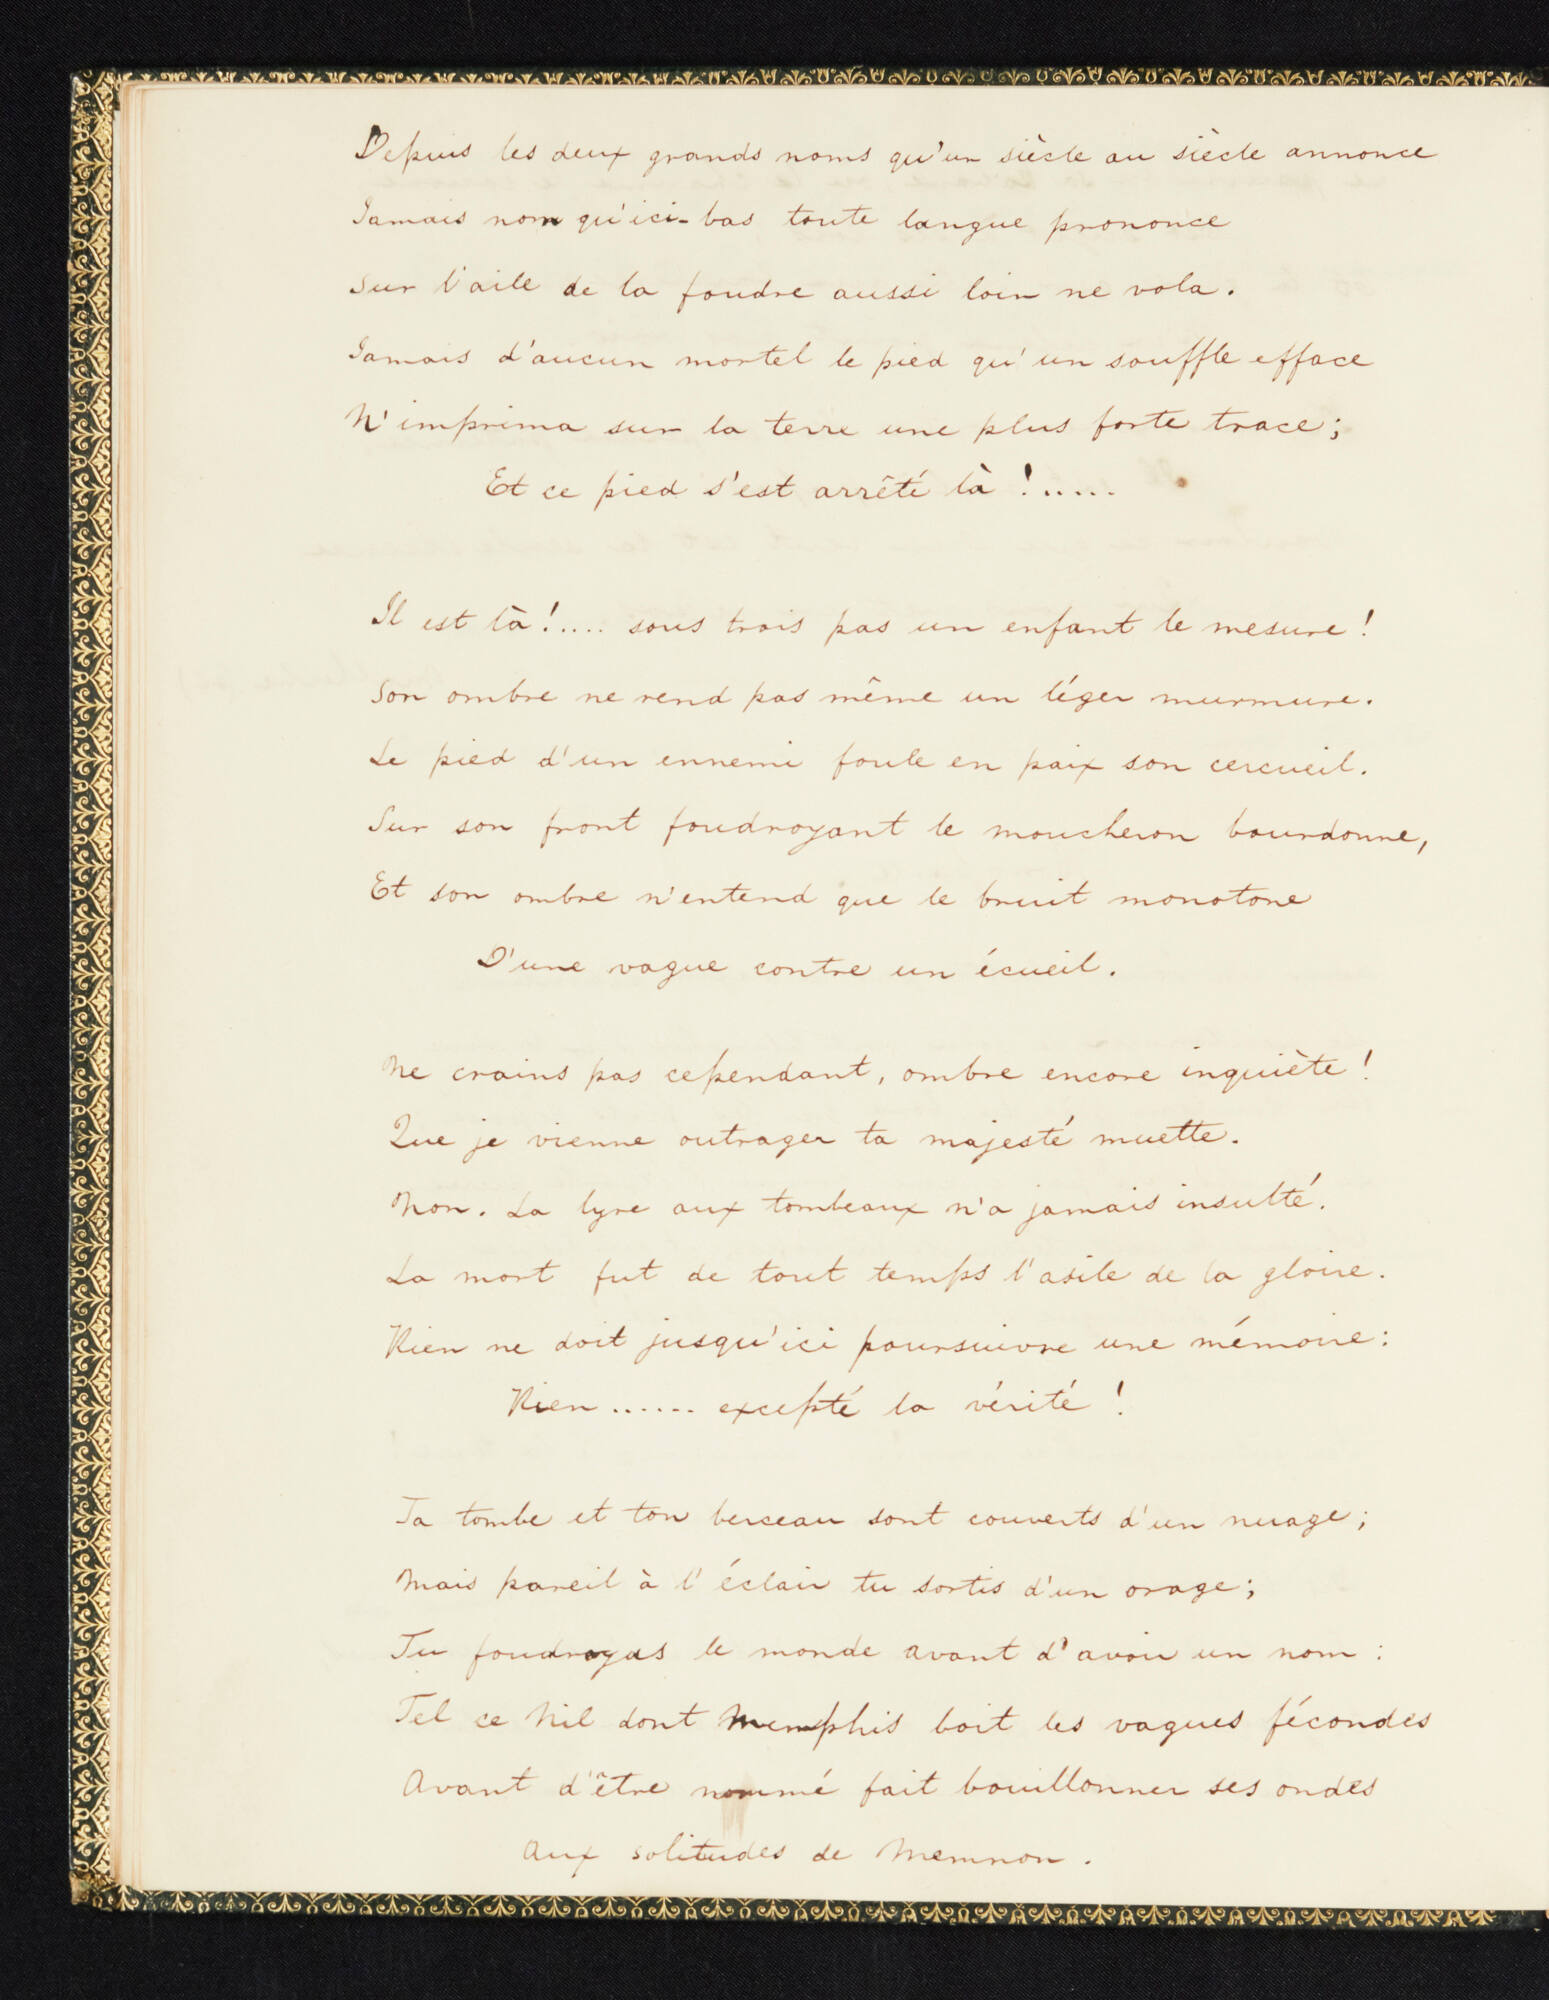 Depuis les deux grands noms qu'un siècle au siècle annonce
Jamais nom qu'ici-bas toute langue prononce
Sur l'aile de la foudre aussi loin ne vola.
Jamais d'aucun mortel le pied qu'un souffle efface
N'imprima sur la terre une plus forte trace;
Et ce pied s'est arrêté là !.....
Il est là !.... sous trois pas un enfant le mesure !
Son ombre ne rend pas même un léger murmure.
Le pied d'un ennemi foule en paix son cercueil.
Sur son front foudroyant le moucheron bourdonne,
Et son ombre n'entend que le bruit monotone
D'une vague contre un écueil.
Ne crains pas cependant, ombre encore inquiète !
Que je vienne outrager ta majesté muette.
Non. La lyre aux tombeaux n'a jamais insulté.
La mort fut de tout temps l'asile de la gloire.
Rien ne doit jusqu'ici poursuivre une mémoire :
Rien ...... excepté la vérité !
Ta tombe et ton berceau sont couverts d'un nuage;
Mais pareil à l'éclair tu sortis d'un orage;
Tu foudroyas le monde avant d'avoir un nom :
Tel ce Nil dont Memphis boit les vagues fécondes
Avant d'être nommé fait bouillonner ses ondes
Aux solitudes de Memnon.